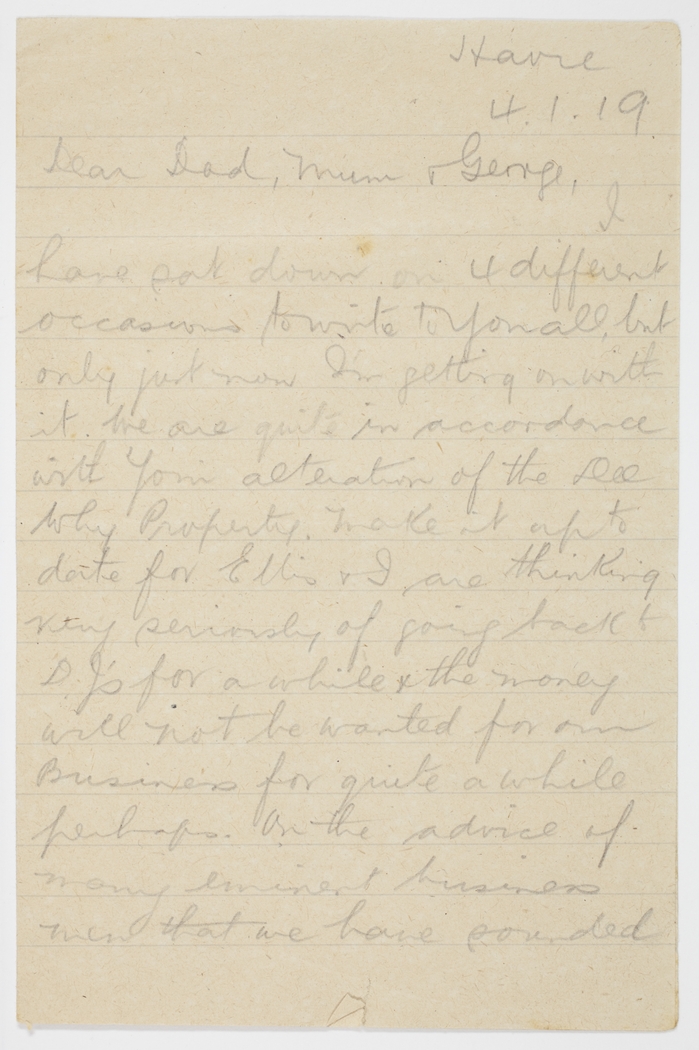 Havre
4.1.19
Dear Dad, Mum & George,
I
have sat down on 4 different
occasions to write to You all, but
only just now I'm getting on with
it. We are quite in accordance
with Your alteration of the Dee
Why Property. Make it up to
date for Ellis & I are thinking
very seriously of going back to
D.J's for a while & the money
will not be wanted for our
Business for quite a while
perhaps. On the advice of
many eminent business
men that we have sounded